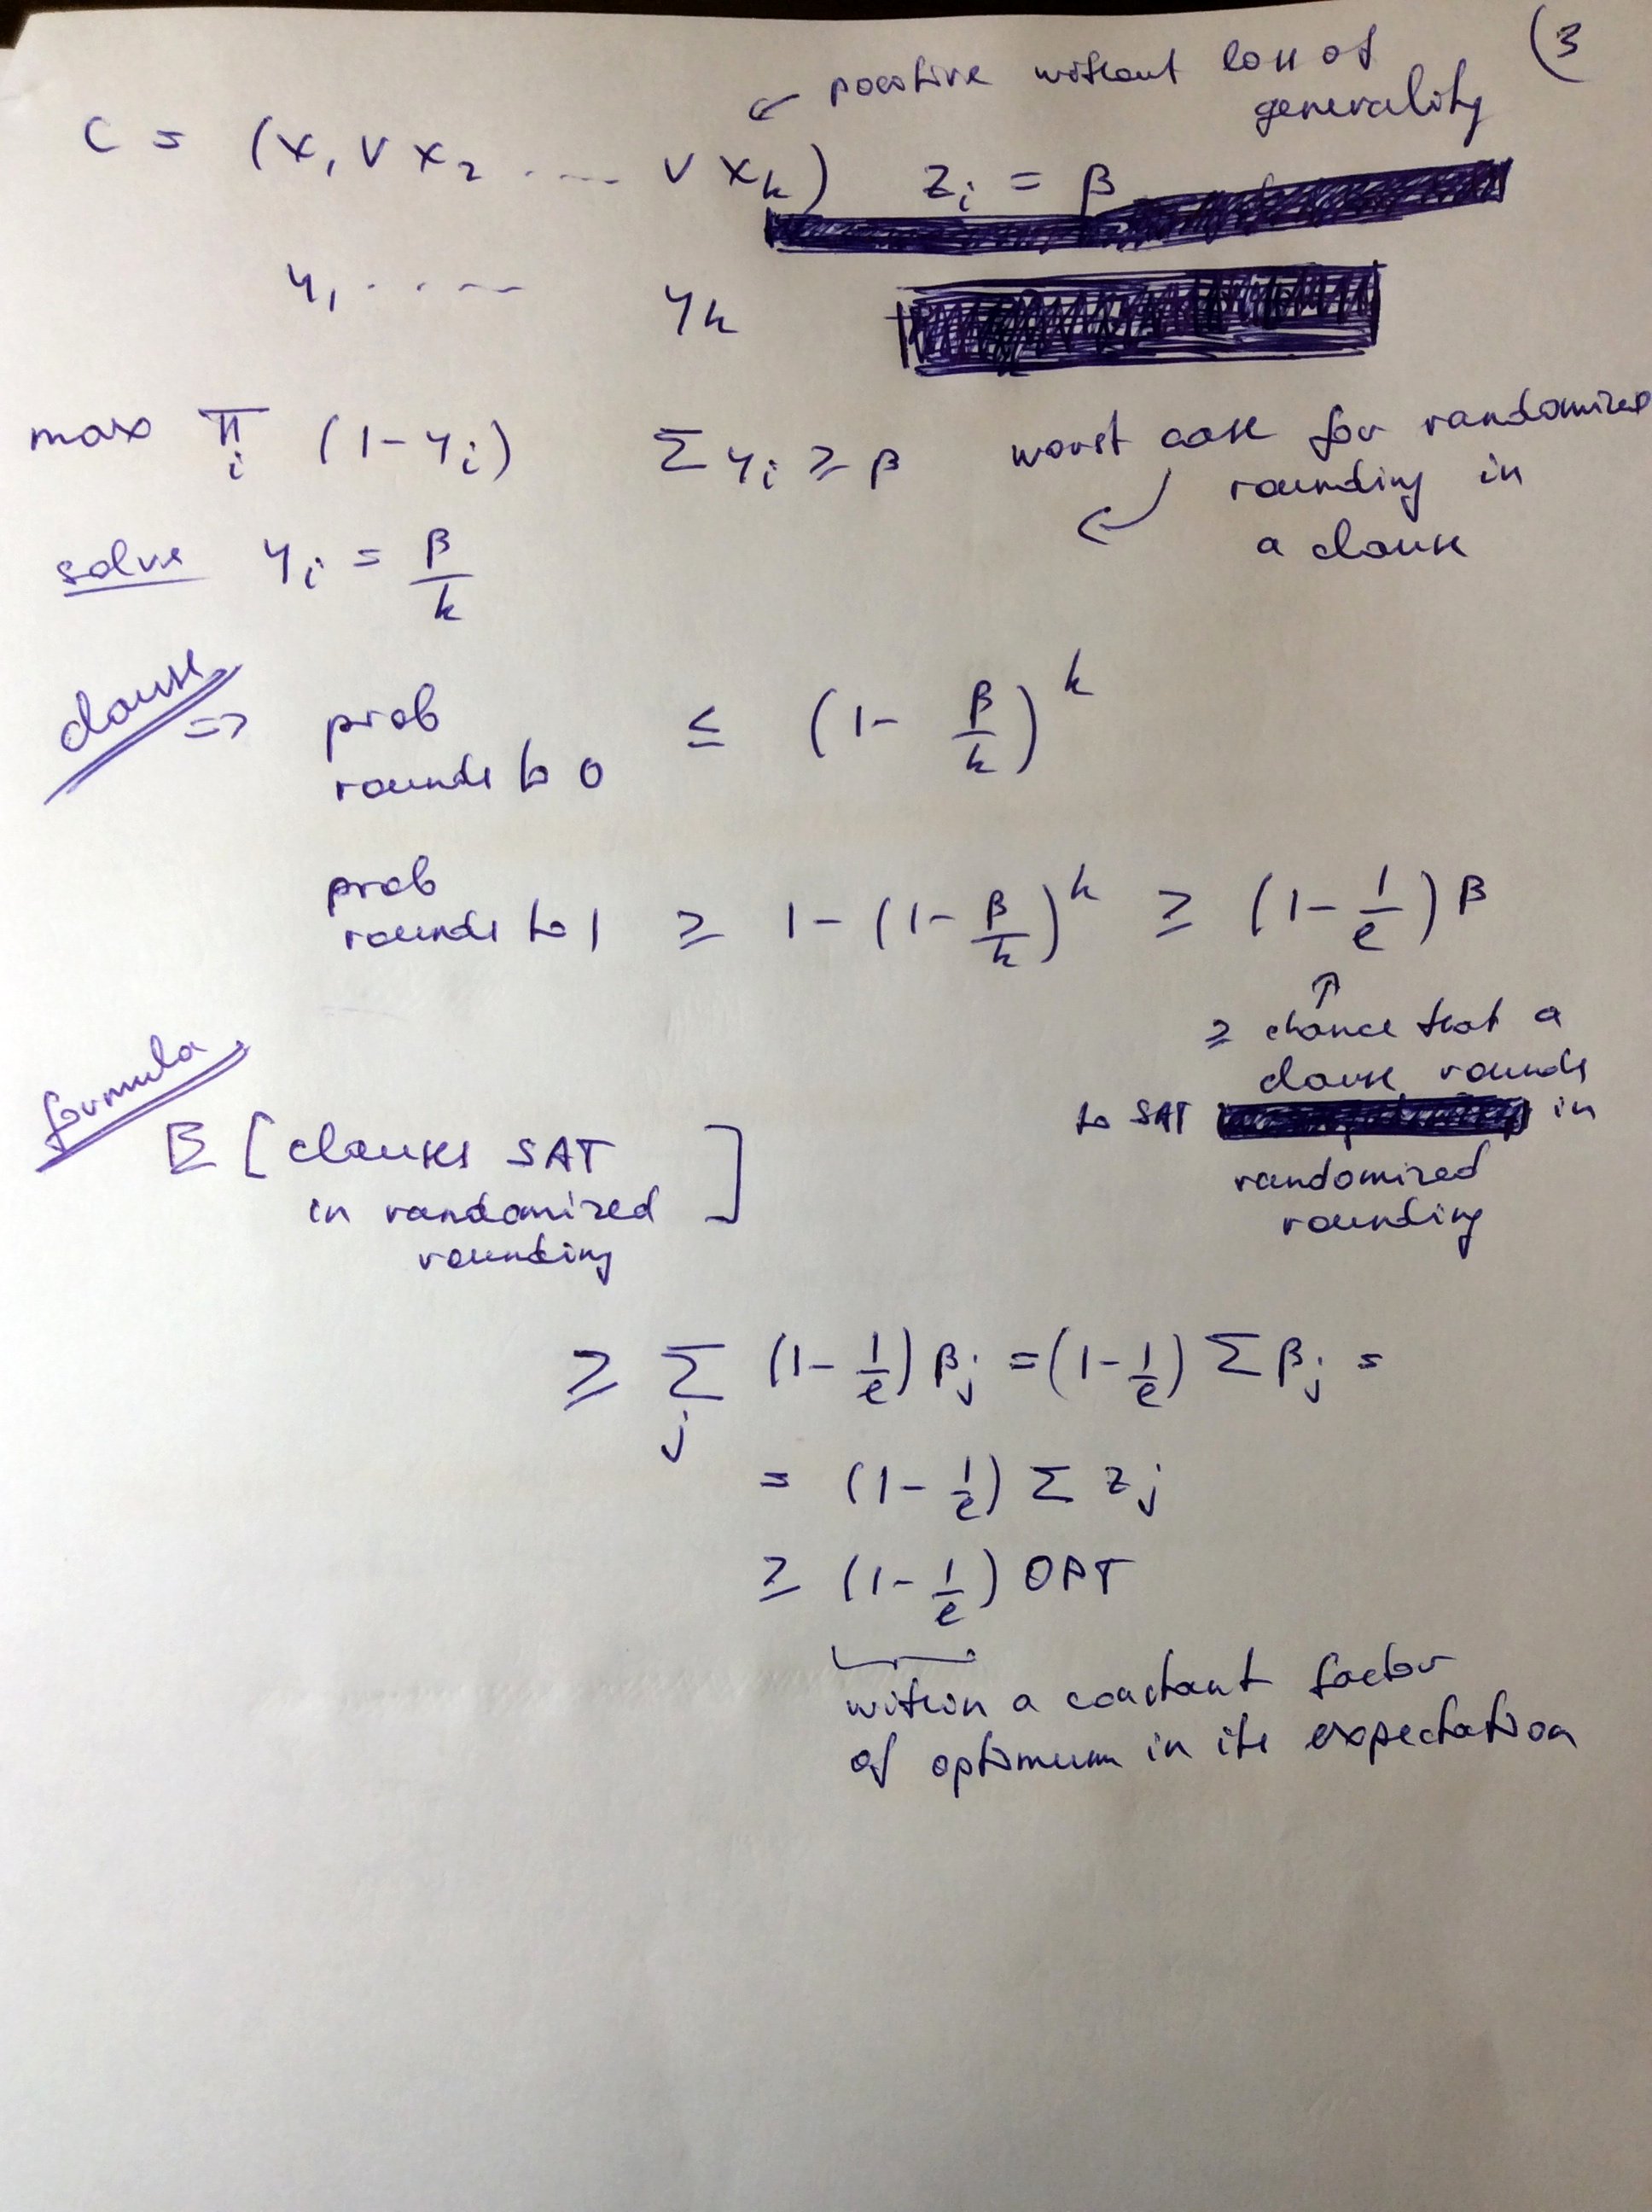 (3
↙ positive without loss of
generality
C = (x₁ ∨ x₂ ..... ∨ xₖ) zᵢ = β
y₁ ..... yₖ
max ∏ᵢ (1-yᵢ) Σyᵢ ≥ β worst case for randomized
rounding in
a clause
solve yᵢ = β/k
clause
=> prob
rounds to 0 ≤ (1 - β/k)ᵏ
prob
rounds to 1 ≥ 1-(1-β/k)ᵏ ≥ (1-1/e)β
↑
≥ chance that a
clause rounds
to SAT in
randomized
rounding
formula
E [clauses SAT
in randomized
rounding]
≥ Σⱼ (1-1/e)βⱼ =(1-1/e) Σβⱼ =
= (1-1/e) Σ zⱼ
≥ (1-1/e) OPT
within a constant factor
of optimum in its expectation